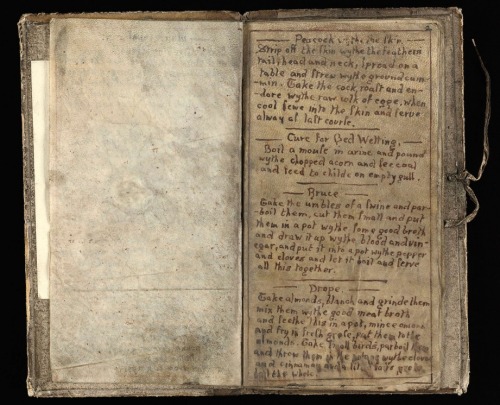 Peacock in the Skin.
Strip off the Skin wythe the feathers
tail, head and neck, spread on a
table and strew wythe ground cum-
min. Take the cock, roast and en-
dore wythe raw yolk of egge, when
cool sewe into the Skin and serve
alway at last course.
Cure for Bed Wetting.
Boil a mouse in urine and pound
wythe chopped acorn and
and feed to childe on empty gull.
Bruce
Take the umbles of a swine and par-
boil them, cut them small and put
them in a pot wythe some good broth
and draw it up wythe blood and vin-
egar, and put it into a pot wythe pepper
and cloves and let it boil and serve
all this together.
Drope
Take almonds, blanch and grinde them
mix them withe good meat broth
and seethe this in a pot, mince onions
and fry in fresh grese, put them to the
almonds. Take small birds, parboil them
and throw them in the wythe cloves
and cinnamon and a lit
the whole